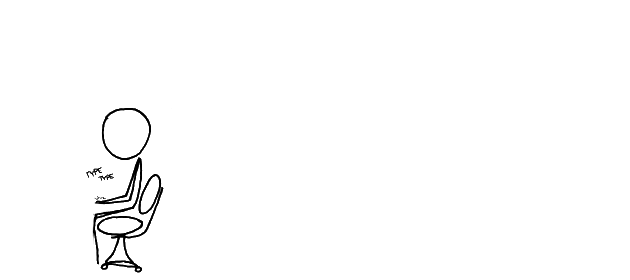 TYPE
TYPE